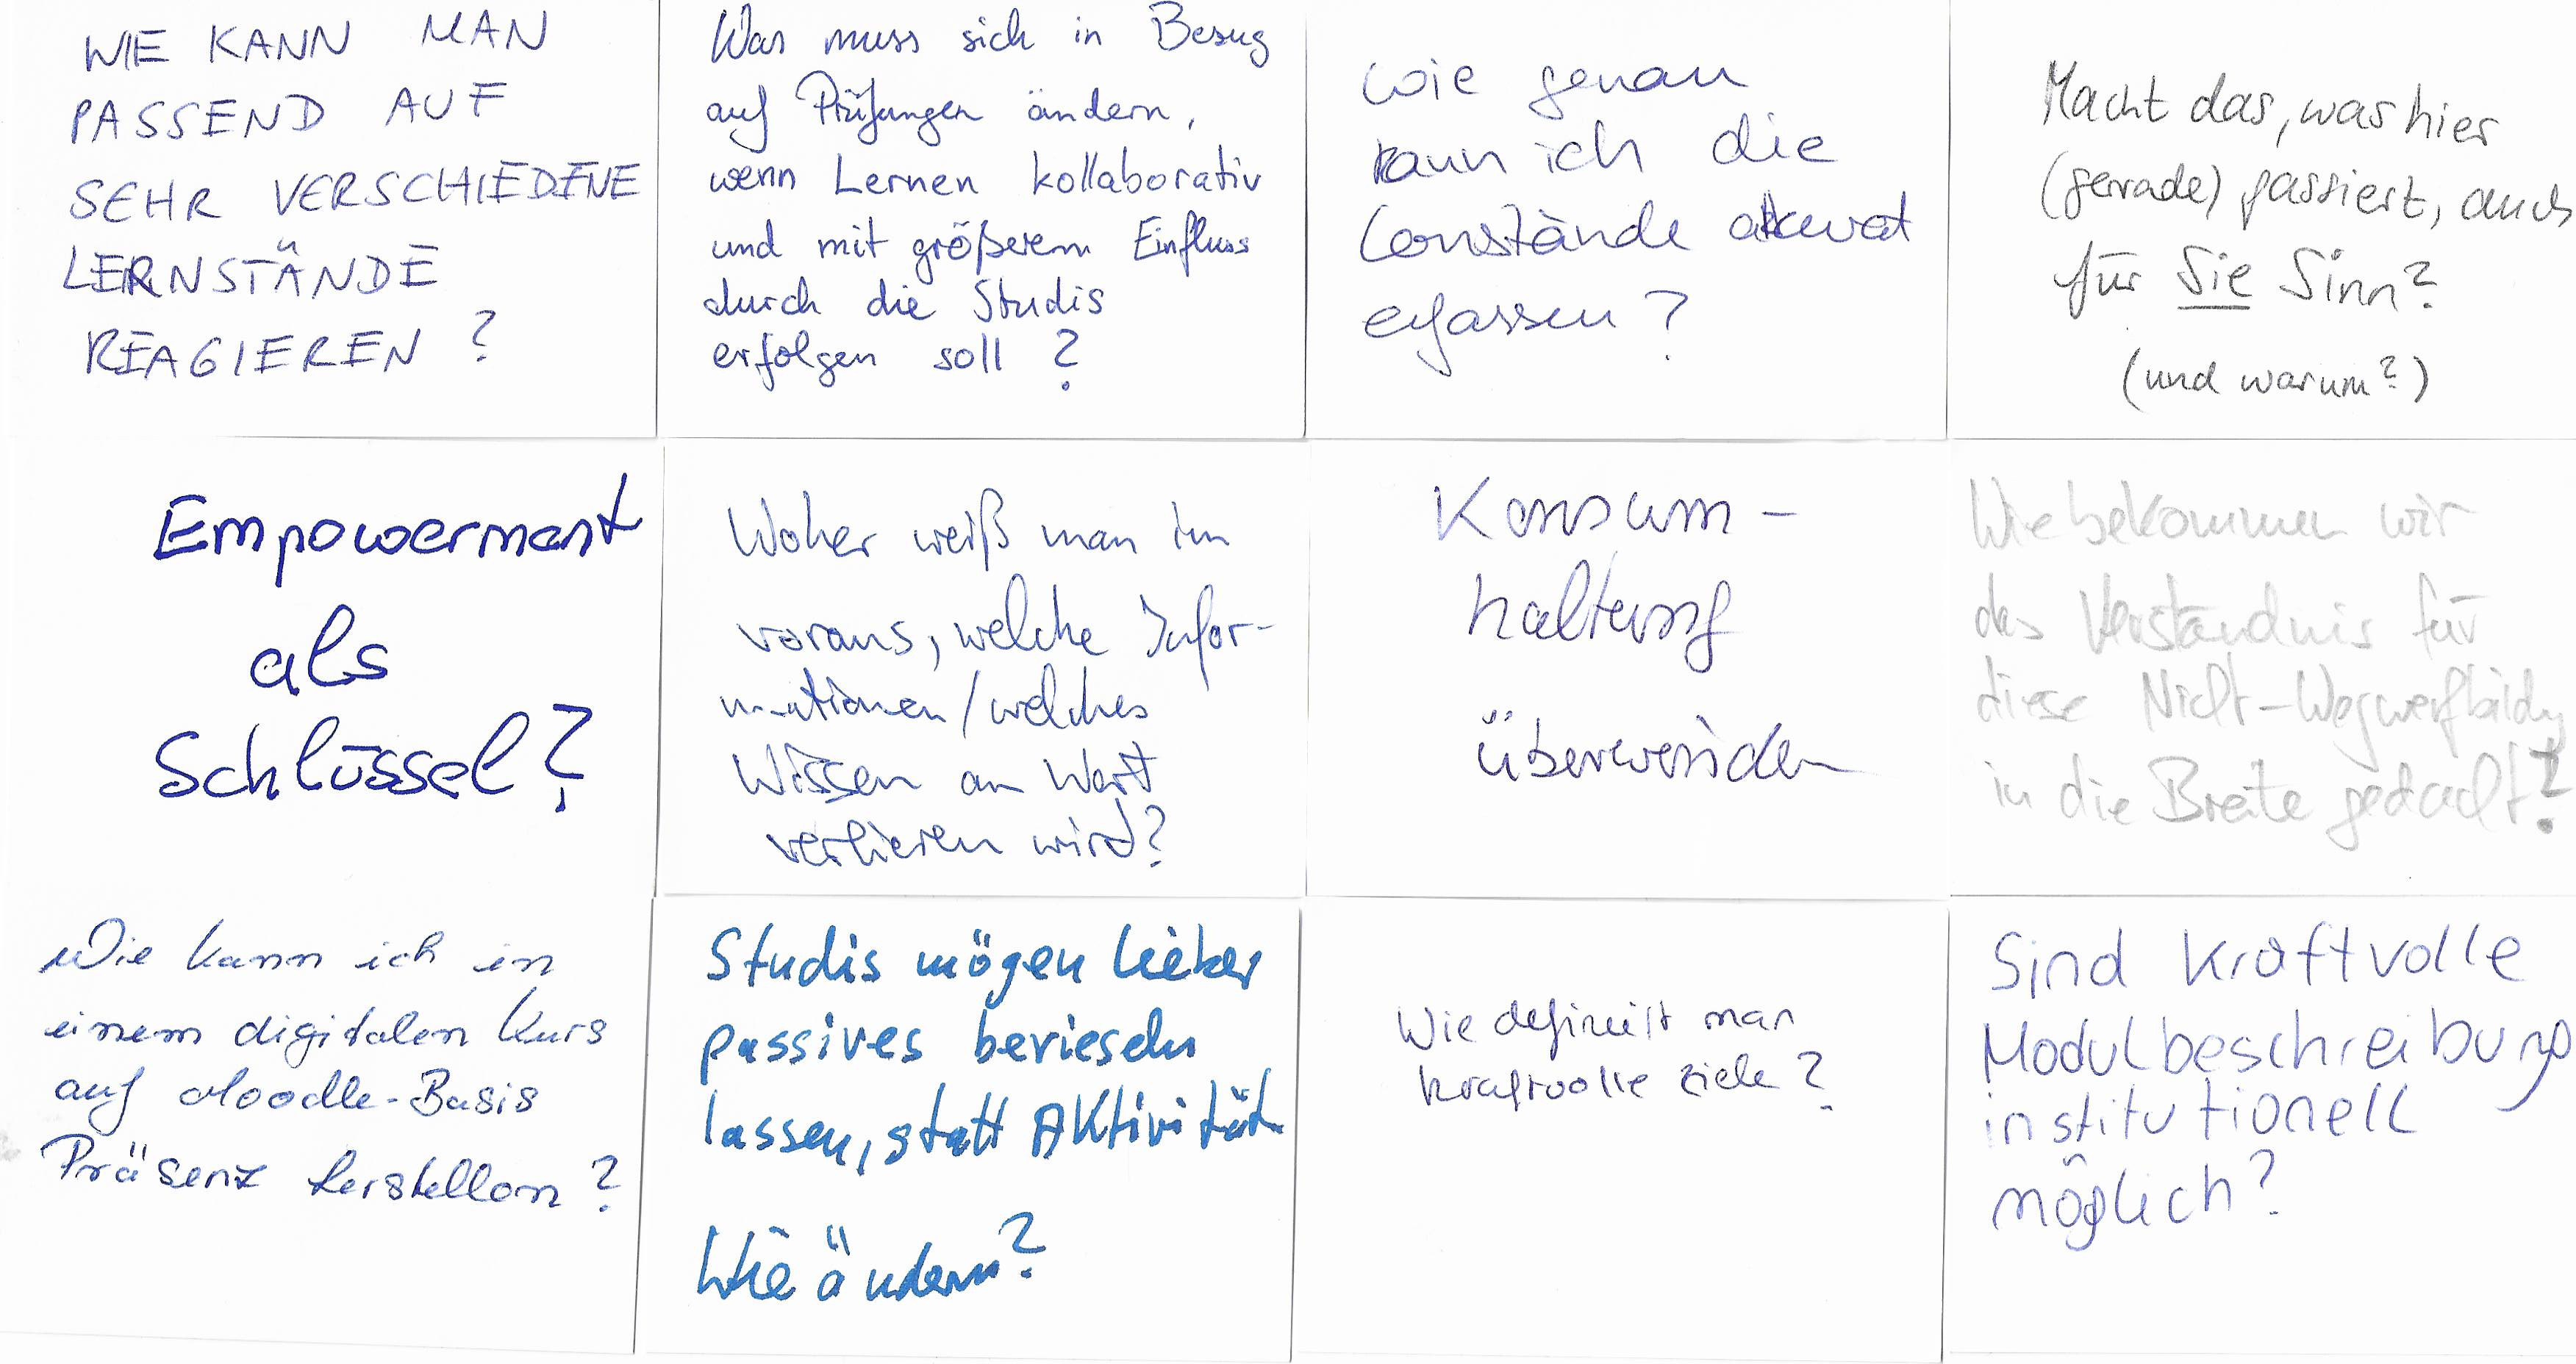 WIE KANN MAN
PASSEND AUF
SEHR VERSCHIEDENE
LERNSTÄNDE
REAGIEREN?
Was muss sich in Bezug
auf Prüfungen ändern,
wenn Lernen kollaborativ
und mit größerem Einfluss
durch die Studis
erfolgen soll?
Wie genau
kann ich die
Lernstände akkurat
erfassen?
Macht das, was hier
(gerade) passiert, auch
für Sie Sinn?
(und warum?)
Empowerment
als
Schlüssel?
Woher weiß man im
voraus, welche Infor-
mationen/welches
Wissen an Wert
verlieren wird?
Konsum-
haltung
überwinden
Wie bekommen wir
das Verständnis für
diese Nicht-Wegwerfbildung
in die Breite gedacht?
Wie kann ich in
einem digitalen Kurs
auf Moodle-Basis
Präsenz herstellen?
Studis mögen lieber
passives berieseln
lassen, statt Aktivität
Wie ändern?
Wie definiert man
kraftvolle Ziele?
Sind kraftvolle
Modulbeschreibung
institutionell
möglich?